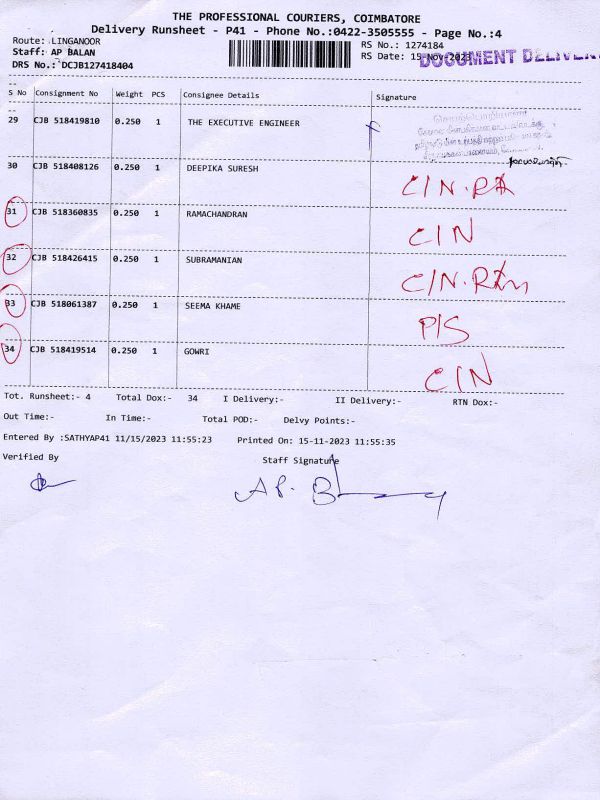 THE PROFESSIONAL COURIERS, COIMBATORE
Delivery Runsheet - P41 - Phone No.:0422-3505555 - Page No.:4
Route: LINGANOOR
RS No.: 1274184
Staff: AP BALAN
RS Date: 15-Nov-2023
DOCUMENT DELIVER
DRS No.: DCJB127418404
S No Consignment No Weight PCS Consignee Details Signature
29 CJB 518419810 0.250 1 THE EXECUTIVE ENGINEER
30 CJB 518408126 0.250 1 DEEPIKA SURESH
31 CJB 518360835 0.250 1 RAMACHANDRAN C/N
32 CJB 518426415 0.250 1 SUBRAMANIAN
33 CJB 518061387 0.250 1 SEEMA KHAME P/S
34 CJB 518419514 0.250 1 GOWRI C/N
Tot. Runsheet:- 4 Total Dox:- 34 I Delivery:- II Delivery:- RTN Dox:-
Out Time:- In Time:- Total POD:- Delvy Points:-
Entered By :SATHYAP41 11/15/2023 11:55:23 Printed On: 15-11-2023 11:55:35
Verified By Staff Signature
AP. B